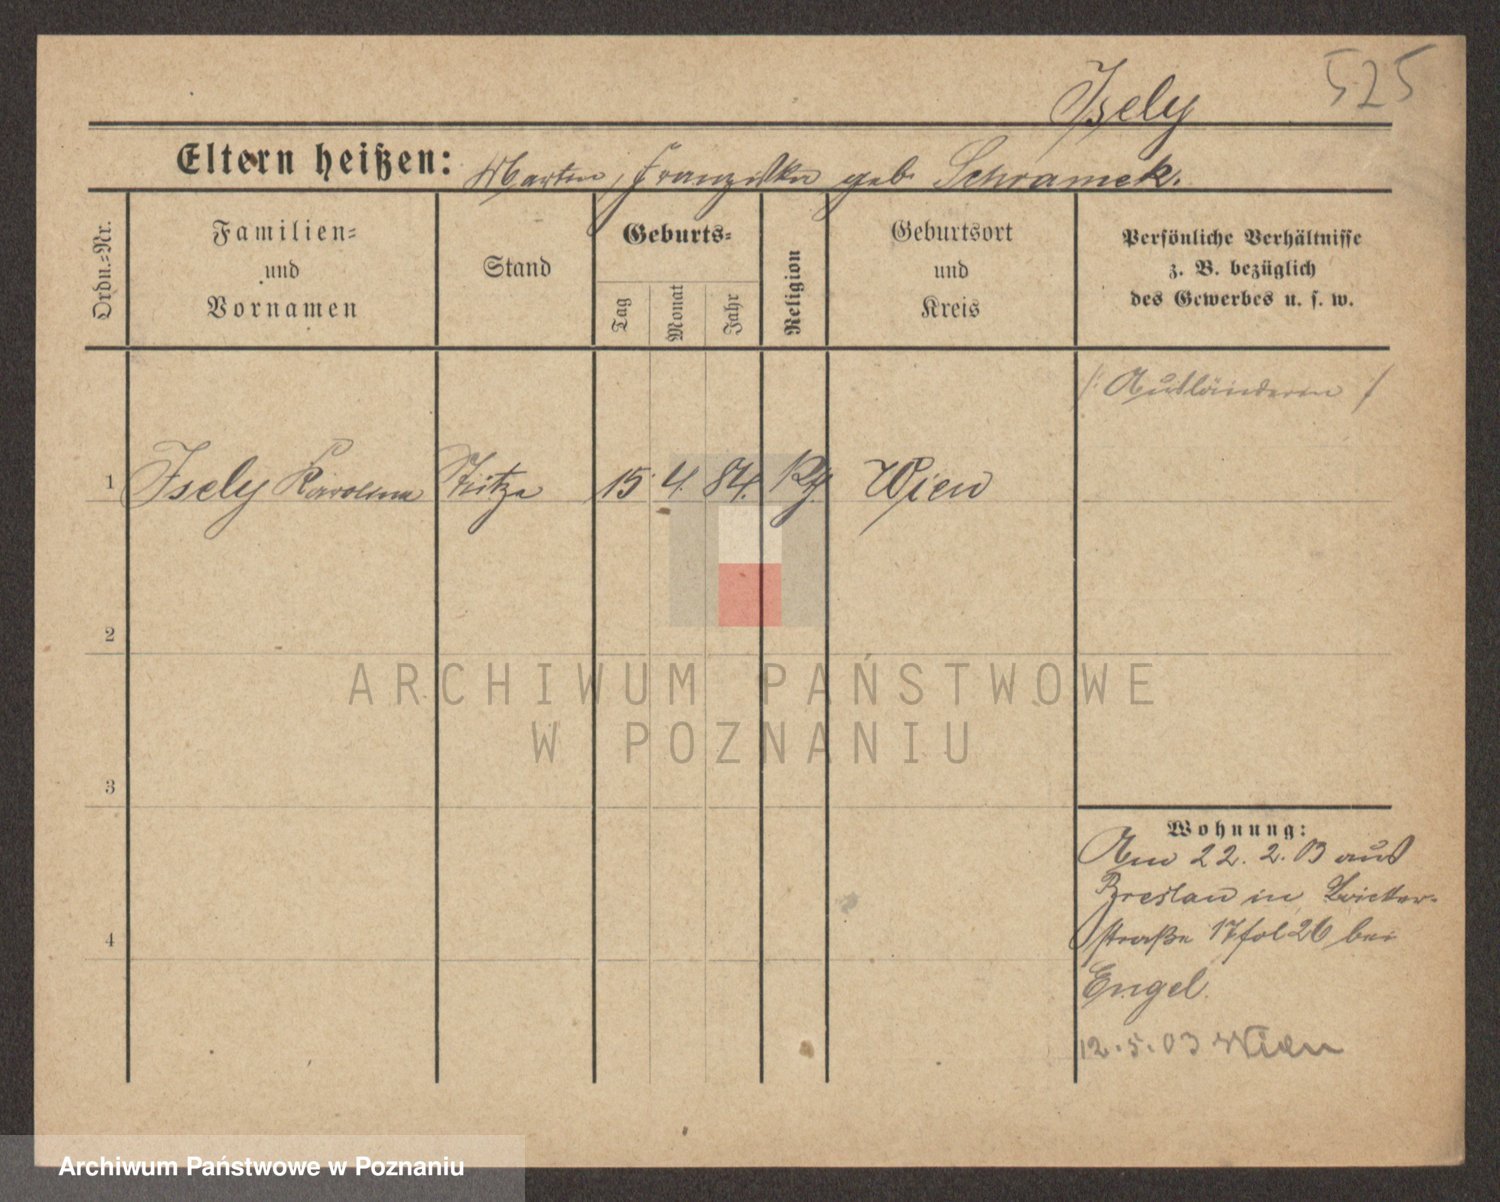 525
Isely
Eltern heißen: Martin, Franziska geb. Schramek.
Ordn.-Nr.
Familien-
und
Vornamen
Stand
Geburts-
Tag
Monat
Jahr
Religion
Geburtsort
und
Kreis
Persönliche Verhältnisse
z. B. bezüglich
des Gewerbes u. s. w.
/: Ausländerin /
1 Isely Karolina 15. 4. 84. Wien
2
ARCHIWUM PAŃSTWOWE
W POZNANIU
3
Wohnung:
Am 22.2.03 aus
Breslau in
straße 17 fol 26 bei
4
Engel.
12.5.03 Wien
Archiwum Państwowe w Poznaniu